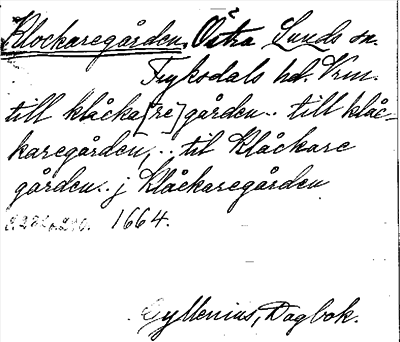 Klockaregården, Östra Lunds sn.
Fryksdals hd. Vrm.
till klåcka[re]gården.. till klåc-
karegården,.. til Klåckare
gården.. j Klåckaregården
1664.
Gyllenius, Dagbok.